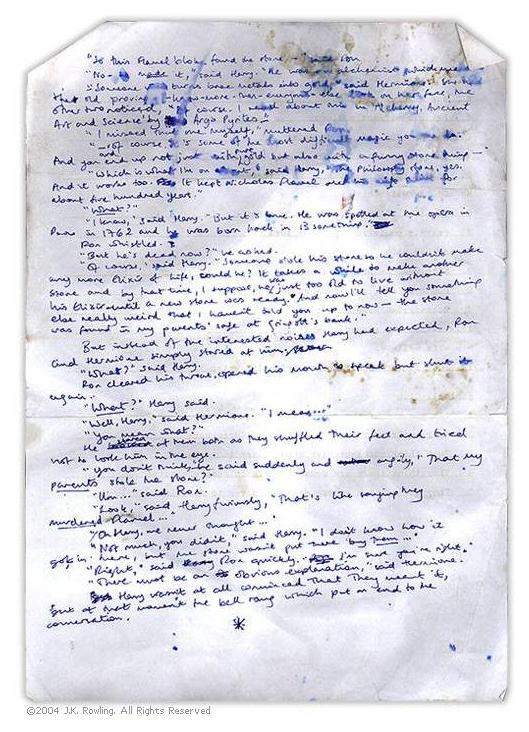 "So this Flamel bloke found the stone -" said Ron.
"No - made it," said Harry. "He was an alchemist
"Someone who turns base metals into gold," said Hermione.
that old proving-I-know-more-than-everyone-else look on her face,
other two noticed. "Of course. I read about him in Ancient
Art and Science by Argo Pyrites -"
"I missed that one myself," muttered Ron.
"- of course, it's some of the most difficult magic you can do.
And you end up not just with pure gold but also with a funny stone thing -"
"Which is what I'm on about," said Harry, "the Philosopher's Stone, yes.
And it works too. It kept Nicholas Flamel and his wife alive for
about five hundred years."
"What?"
"I know," said Harry. "But it's true. He was spotted at the opera in
Paris in 1762 and he was born back in 13 something."
Ron whistled.
"But he's dead now?" he asked.
"Of course," said Harry. "Someone stole his stone so he couldn't make
any more Elixir of Life, could he? It takes a while to make another
stone and by that time, I suppose, he was just too old to live without
his Elixir until a new stone was ready. And now I'll tell you something
else really weird that I haven't told you up to now - the stone
was found in my parents' safe at Gringotts bank."
But instead of the interested noises Harry had expected, Ron
and Hermione simply stared at him.
"What?" said Harry.
Ron cleared his throat, opened his mouth to speak but shut it
again.
"What?" Harry said.
"Well, Harry," said Hermione. "I mean..."
"You mean what?"
He stared at them both as they shuffled their feet and tried
not to look him in the eye.
"You don't think," he said suddenly and angrily, "That my
parents stole the stone?"
"Um..." said Ron.
"Look," said Harry furiously, "That's like saying they
murdered Flamel..."
"Oh Harry, we never thought..."
"Not much, you didn't," said Harry. "I don't know how it
got in there, but the stone wasn't put there by them..."
"Right," said Ron quickly. "I'm sure you're right."
"There must be an obvious explanation," said Hermione.
Harry wasn't at all convinced that they meant it,
but at that moment the bell rang which put an end to the
conversation.
*
©2004 J.K. Rowling. All Rights Reserved